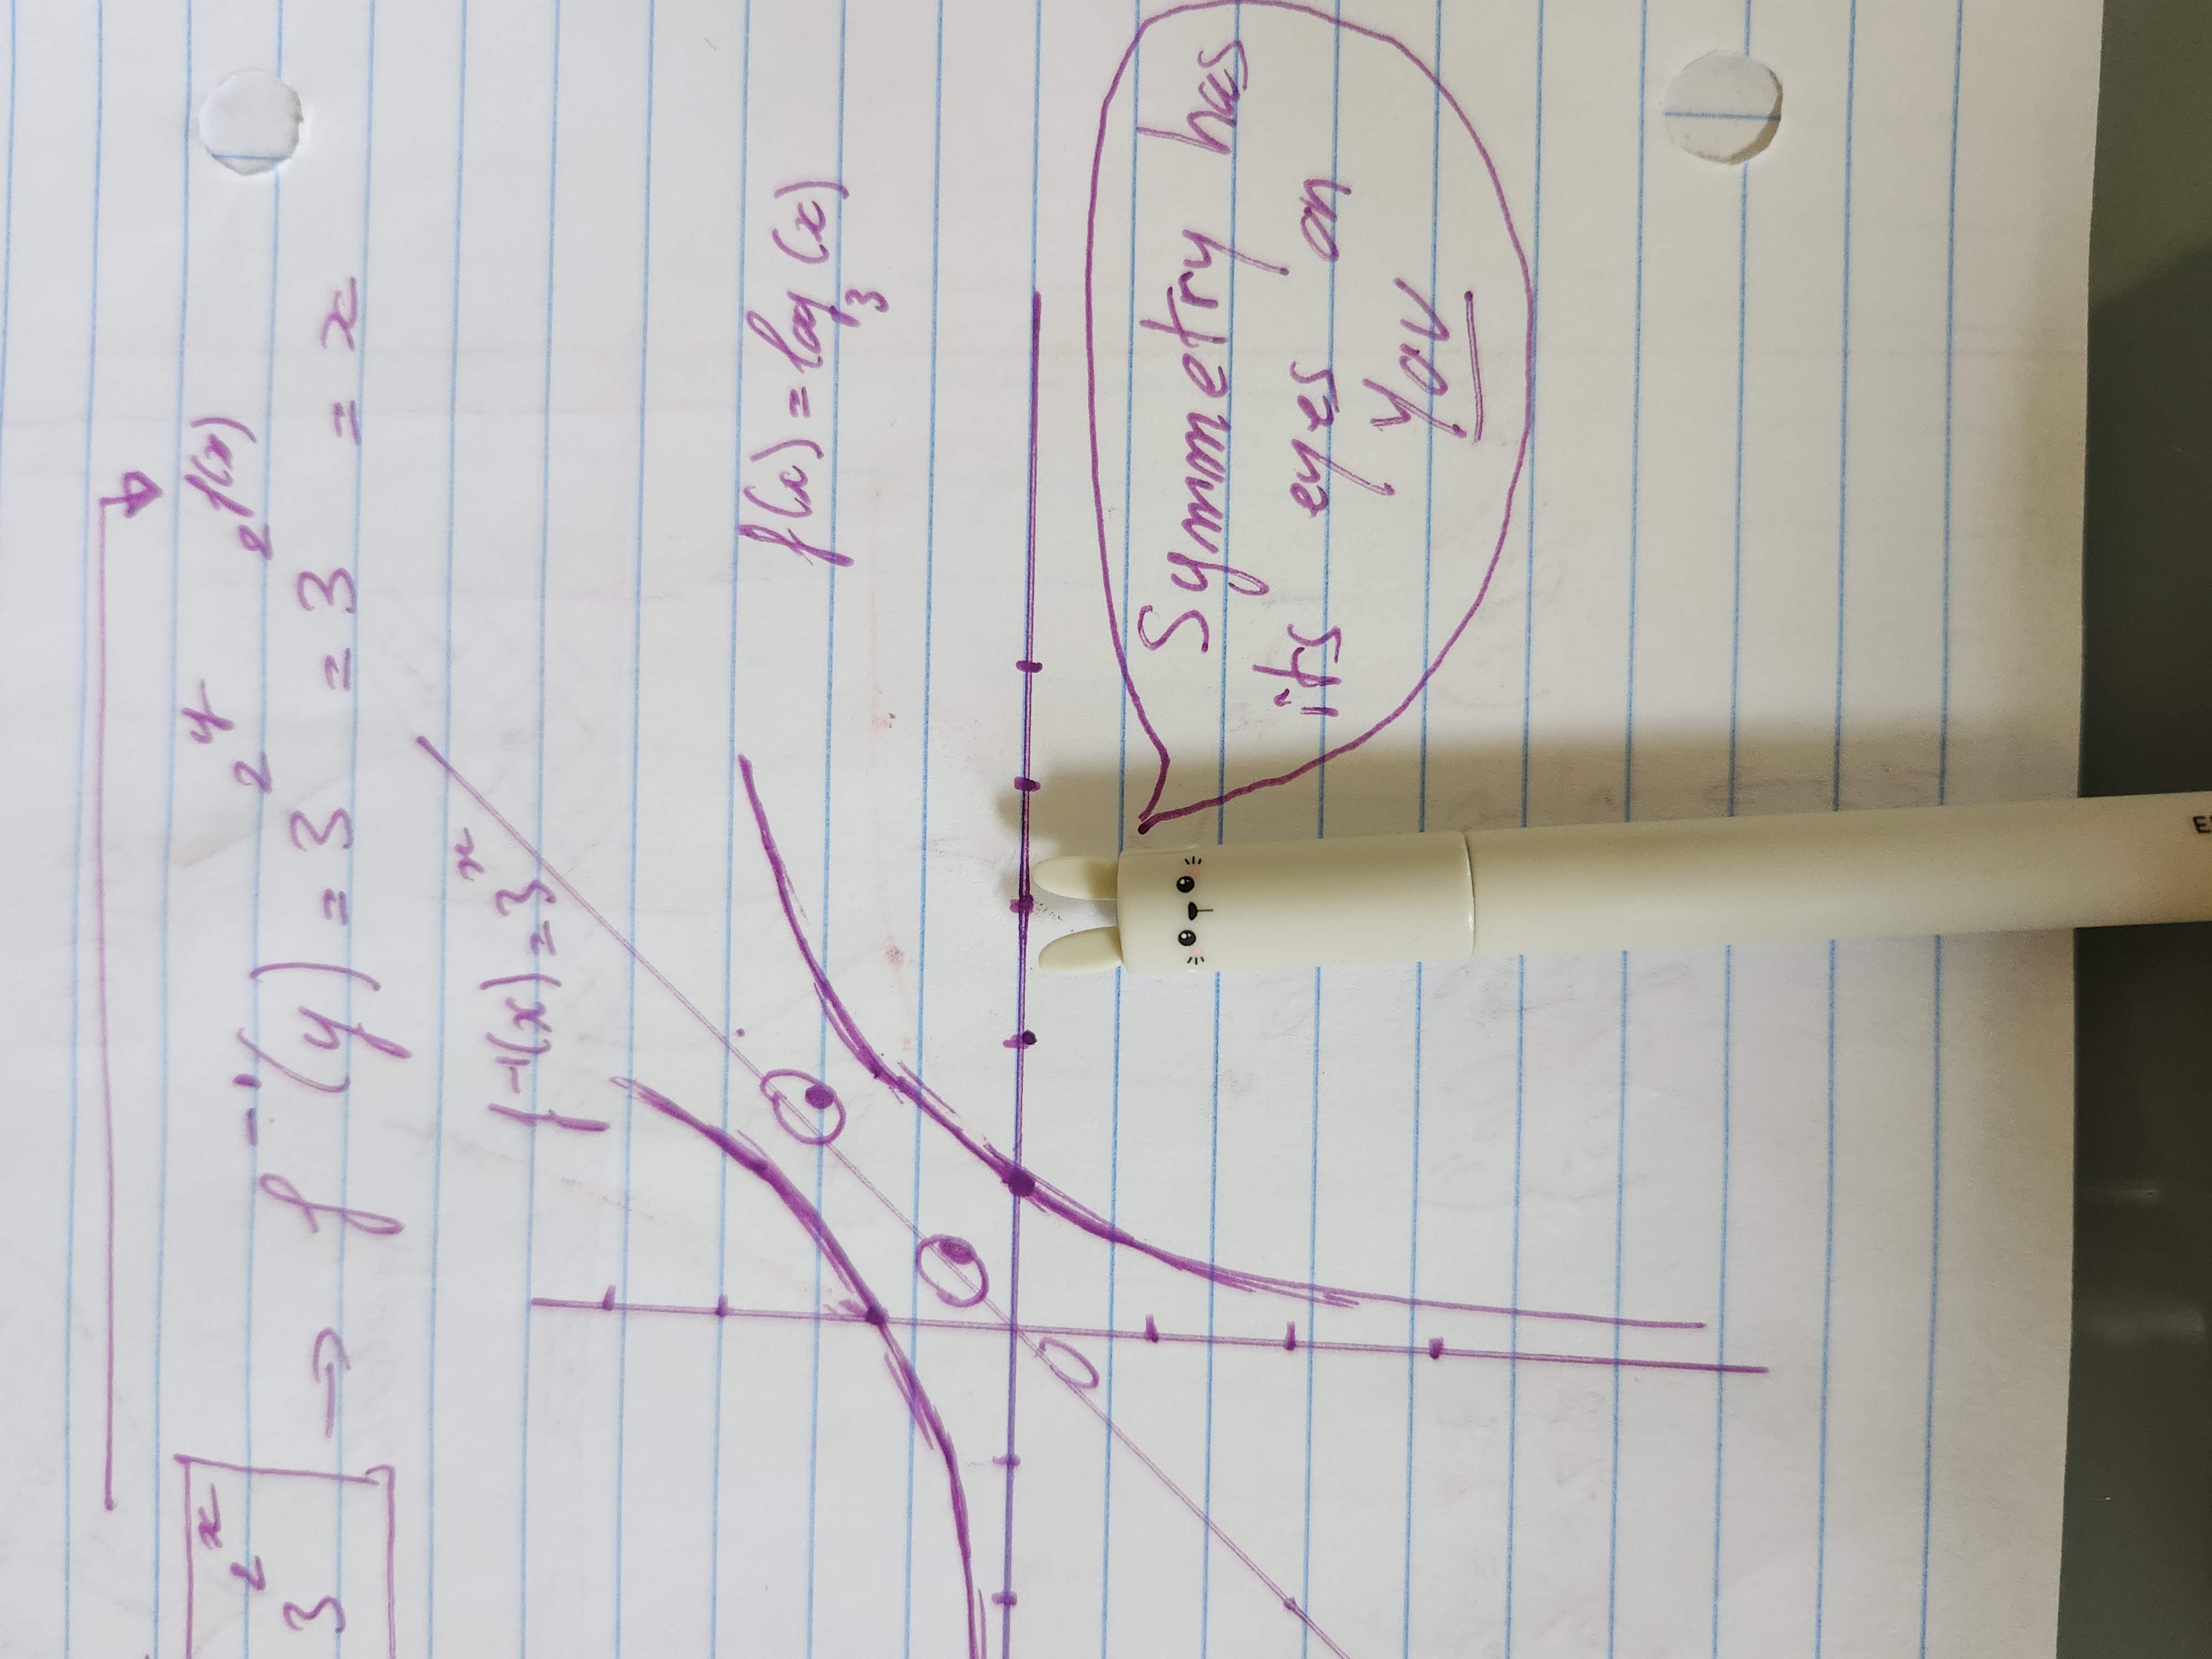 3^{2^x} → f^{-1}(y) = 3^{2^y} = 3^{2^{f(x)}} = x
f^{-1}(x) = 3^x
f(x) = log_3(x)
0
Symmetry has
its eyes on
You